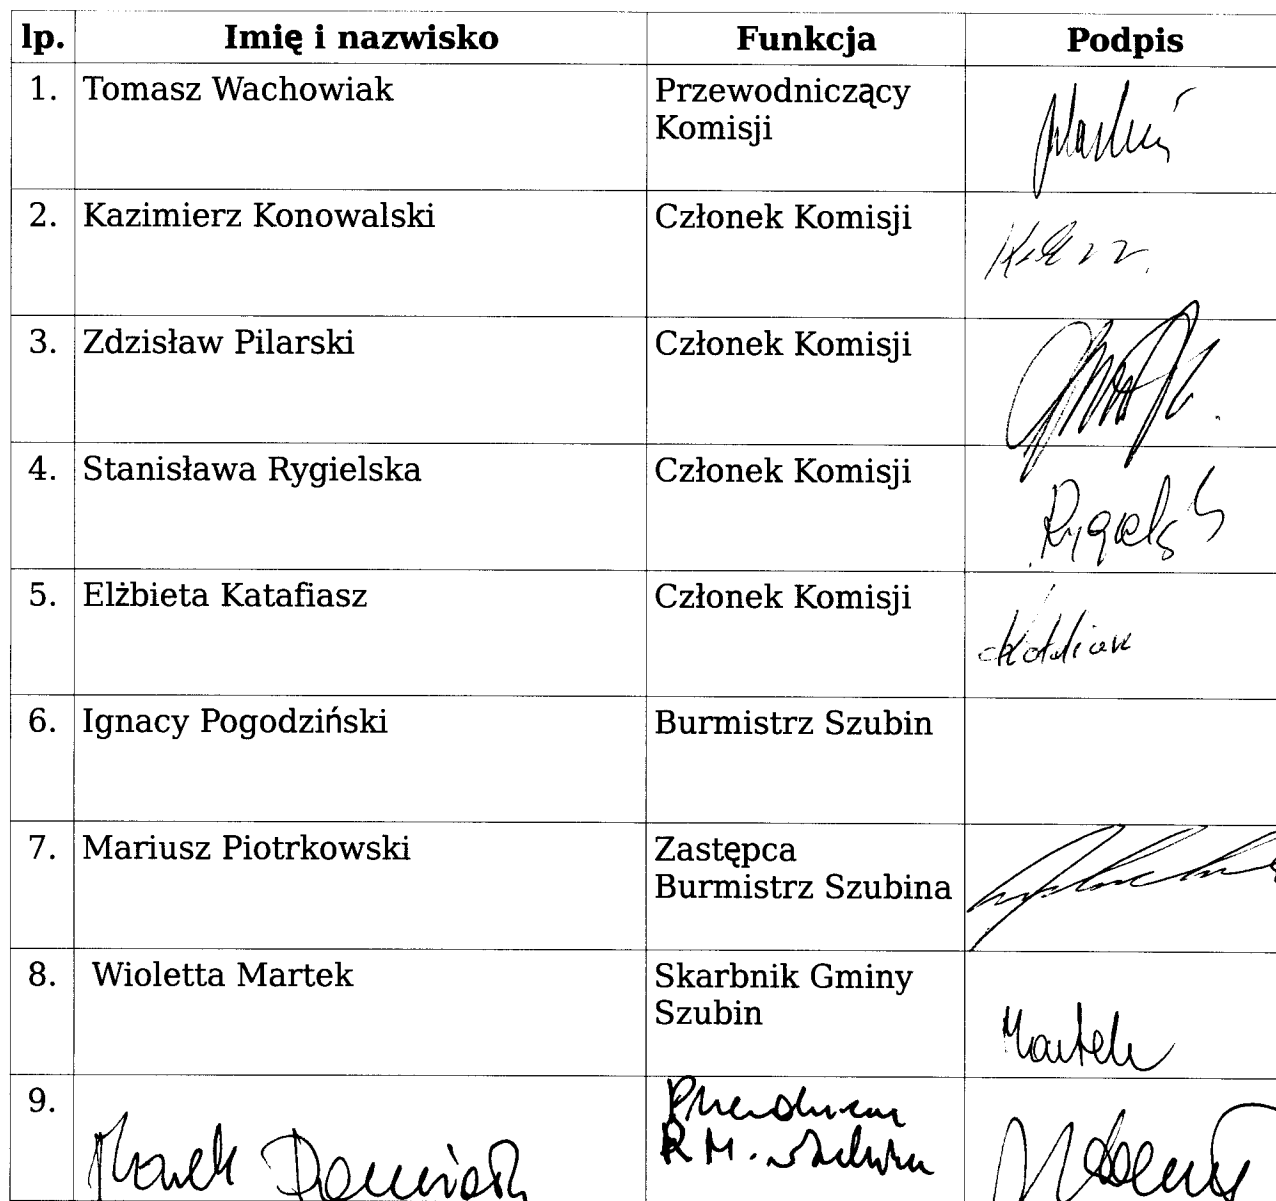 lp. Imię i nazwisko Funkcja Podpis
1. Tomasz Wachowiak Przewodniczący
Komisji
2. Kazimierz Konowalski Członek Komisji
3. Zdzisław Pilarski Członek Komisji
4. Stanisława Rygielska Członek Komisji
5. Elżbieta Katafiasz Członek Komisji
6. Ignacy Pogodziński Burmistrz Szubin
7. Mariusz Piotrkowski Zastępca
Burmistrz Szubina
8. Wioletta Martek Skarbnik Gminy
Szubin
Martek
9.
Marek R.M.